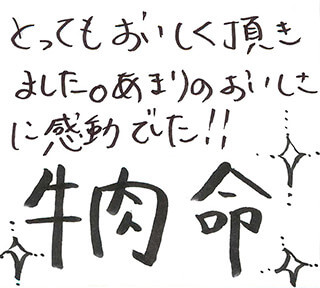 とってもおいしく頂き
ました。あまりのおいしさ
に感動でした!!
牛肉命